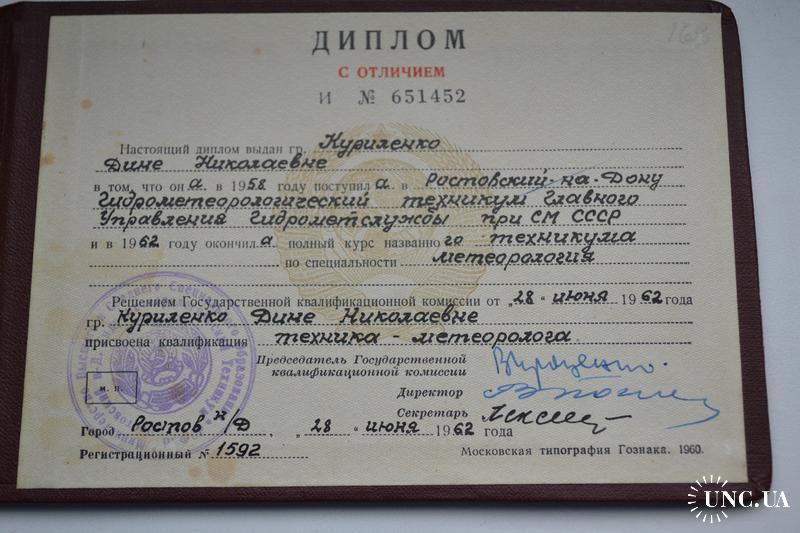 168
ДИПЛОМ
С ОТЛИЧИЕМ
И № 651452
Настоящий диплом выдан гр. Куриленко
Дине Николаевне
в том, что она в 1958 году поступила в Ростовский-на-Дону
Гидрометеорологический техникум Главного
Управления Гидрометслужбы при СМ СССР
и в 1962 году окончила полный курс названного техникума
по специальности метеорология
Решением Государственной квалификационной комиссии от "28" июня 1962 года
гр. Куриленко Дине Николаевне
присвоена квалификация техника-метеоролога.
Председатель Государственной
квалификационной комиссии
Директор
Секретарь
М. П.
Город Ростов н/Д, "28" июня 1962 года
Регистрационный № 1592
Московская типография Гознака. 1960.
UNC.UA